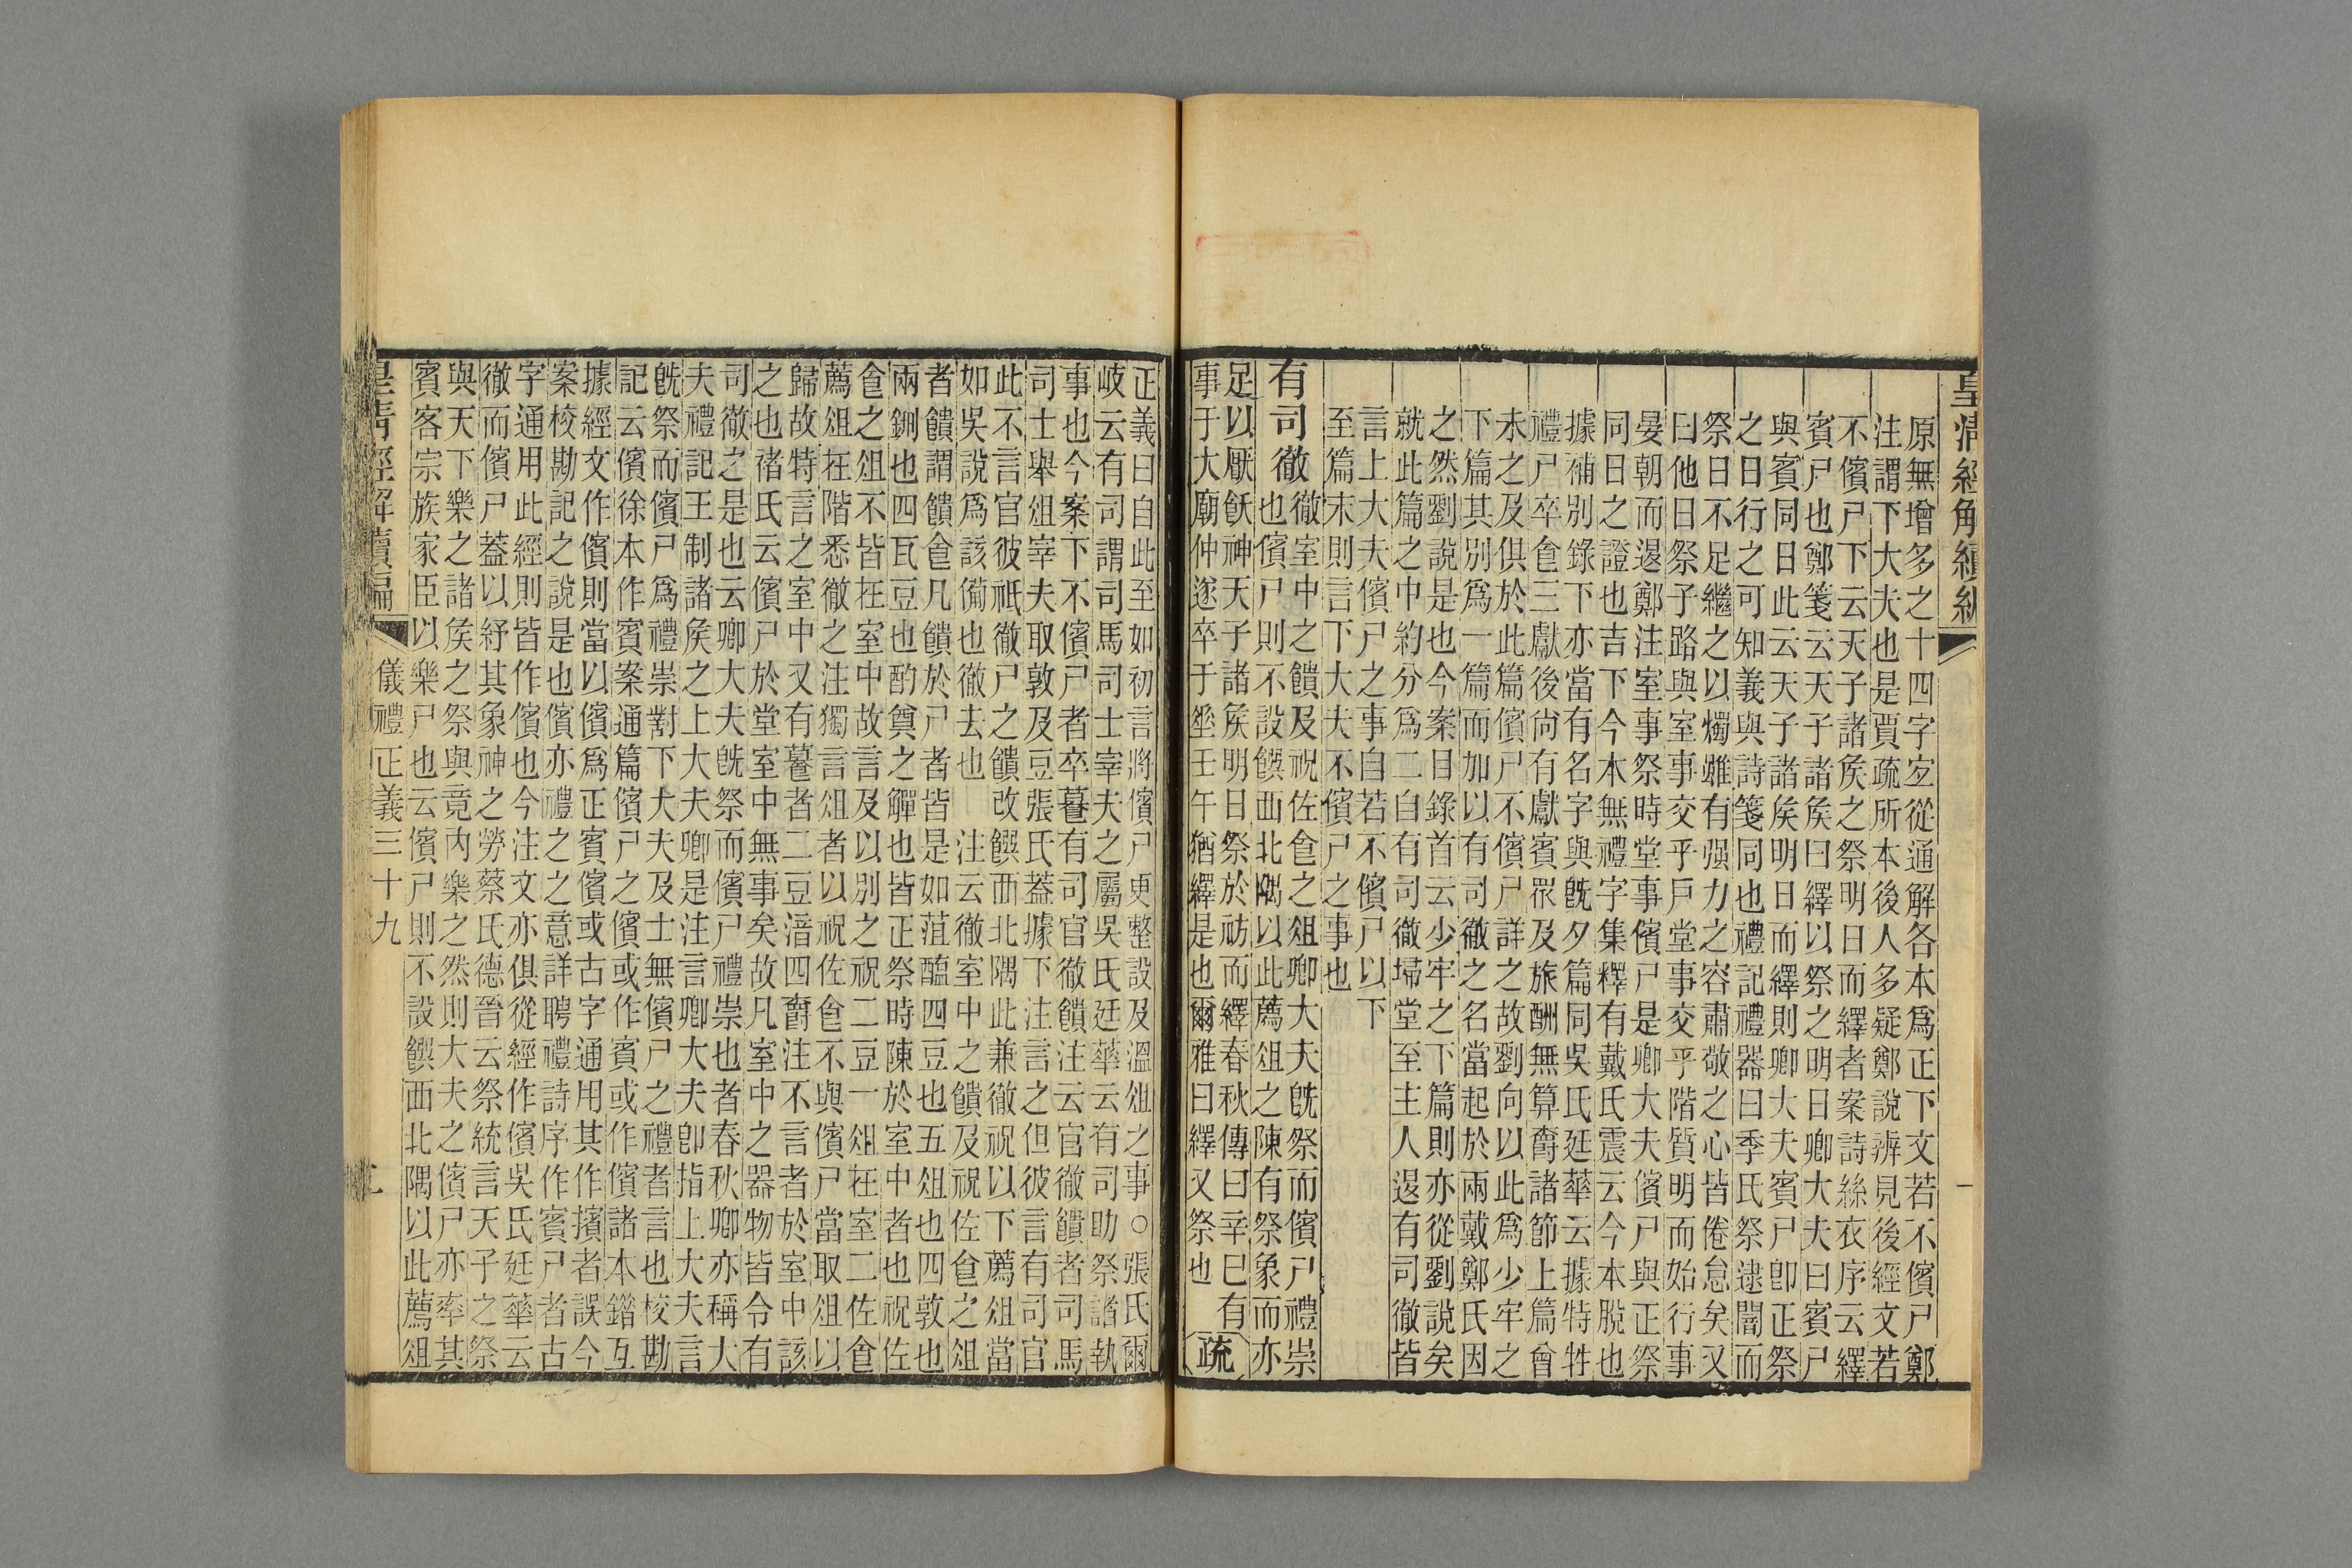 皇清經解續編
原無增多之十四字宐從通解各本爲正下文若不儐尸鄭
注謂下大夫也是賈疏所本後人多疑鄭說辨見後經文若
不儐尸下云天子諸矦之祭明日而繹者案詩絲衣序云繹
賓尸也鄭箋云天子諸矦曰繹以祭之明日卿大夫曰賓尸
與賓同日此云天子諸矦明日而繹則卿大夫賓尸卽正祭
之日行之可知義與詩箋同也禮記禮器曰季氏祭逮闇而
祭日不足繼之以燭雖有强力之容肅敬之心皆倦怠矣又
曰他日祭子路與室事交乎戶堂事交乎階質明而始行事
晏朝而退鄭注室事祭時堂事儐尸是卿大夫儐尸與正祭
同日之證也吉下今本無禮字集釋有戴氏震云今本脫也
據補別錄下亦當有名字與旣夕篇同吳氏廷華云據特牲
禮尸卒食三獻後尙有獻賓眾及旅酬無算爵諸節上篇曾
未之及俱於此篇儐尸不儐尸詳之故劉向以此爲少牢之
下篇其別爲一篇而加以有司徹之名當起於兩戴鄭氏因
之然劉說是也今案目錄首云少牢之下篇則亦從劉說矣
就此篇之中約分爲二自有司徹埽堂至主人退有司徹皆
言上大夫儐尸之事自若不儐尸以下
至篇末則言下大夫不儐尸之事也
有司徹
徹室中之饋及祝佐食之俎卿大夫旣祭而儐尸禮崇
也儐尸則不設饌西北隅以此薦俎之陳有祭象而亦
足以厭飫神天子諸矦明日祭於祊而繹春秋傳曰辛巳有
事于大廟仲遂卒于垂壬午猶繹是也爾雅曰繹又祭也
疏
正義曰自此至如初言將儐尸更整設及溫俎之事○張氏爾
岐云有司謂司馬司士宰夫之屬吳氏廷華云有司助祭諸執
事也今案下不儐尸者卒䬸有司官徹饋注云官徹饋者司馬
司士舉俎宰夫取敦及豆張氏蓋據下注言之但彼言有司官
此不言官彼祇徹尸之饋改饌西北隅此兼徹祝以下薦俎當
如吳說爲該備也徹去也　注云徹室中之饋及祝佐食之俎
者饋謂饋食凡饋於尸者皆是如菹醢四豆也五俎也四敦也
兩鉶也四瓦豆也酌奠之觶也皆正祭時陳於室中者也祝佐
食之俎不皆在室中故言及以別之祝二豆一俎在室二佐食
薦俎在階悉徹之注獨言俎者以祝佐食不與儐尸當取俎以
歸故特言之室中又有䬸者二豆湆四爵注不言者於室中該
之也褚氏云儐尸於堂室中無事矣故凡室中之器物皆令有
司徹之是也云卿大夫旣祭而儐尸禮崇也者春秋卿亦稱大
夫禮記王制諸矦之上大夫卿是注言卿大夫卽指上大夫言
旣祭而儐尸爲禮崇對下大夫及士無儐尸之禮者言也校勘
記云儐徐本作賓案通篇儐尸之儐或作賓或作儐諸本錯互
據經文作儐則當以儐爲正賓儐或古字通用其作擯者誤今
案校勘記之說是也儐亦禮之之意詳聘禮詩序作賓尸者古
字通用此經則皆作儐也今注文亦俱從經作儐吳氏廷華云
徹而儐尸蓋以紓其象神之勞蔡氏德晉云祭統言天子之祭
與天下樂之諸矦之祭與竟內樂之然則大夫之儐尸亦率其
賓客宗族家臣以樂尸也云儐尸則不設饌西北隅以此薦俎
皇清經解續編　儀禮正義三十九